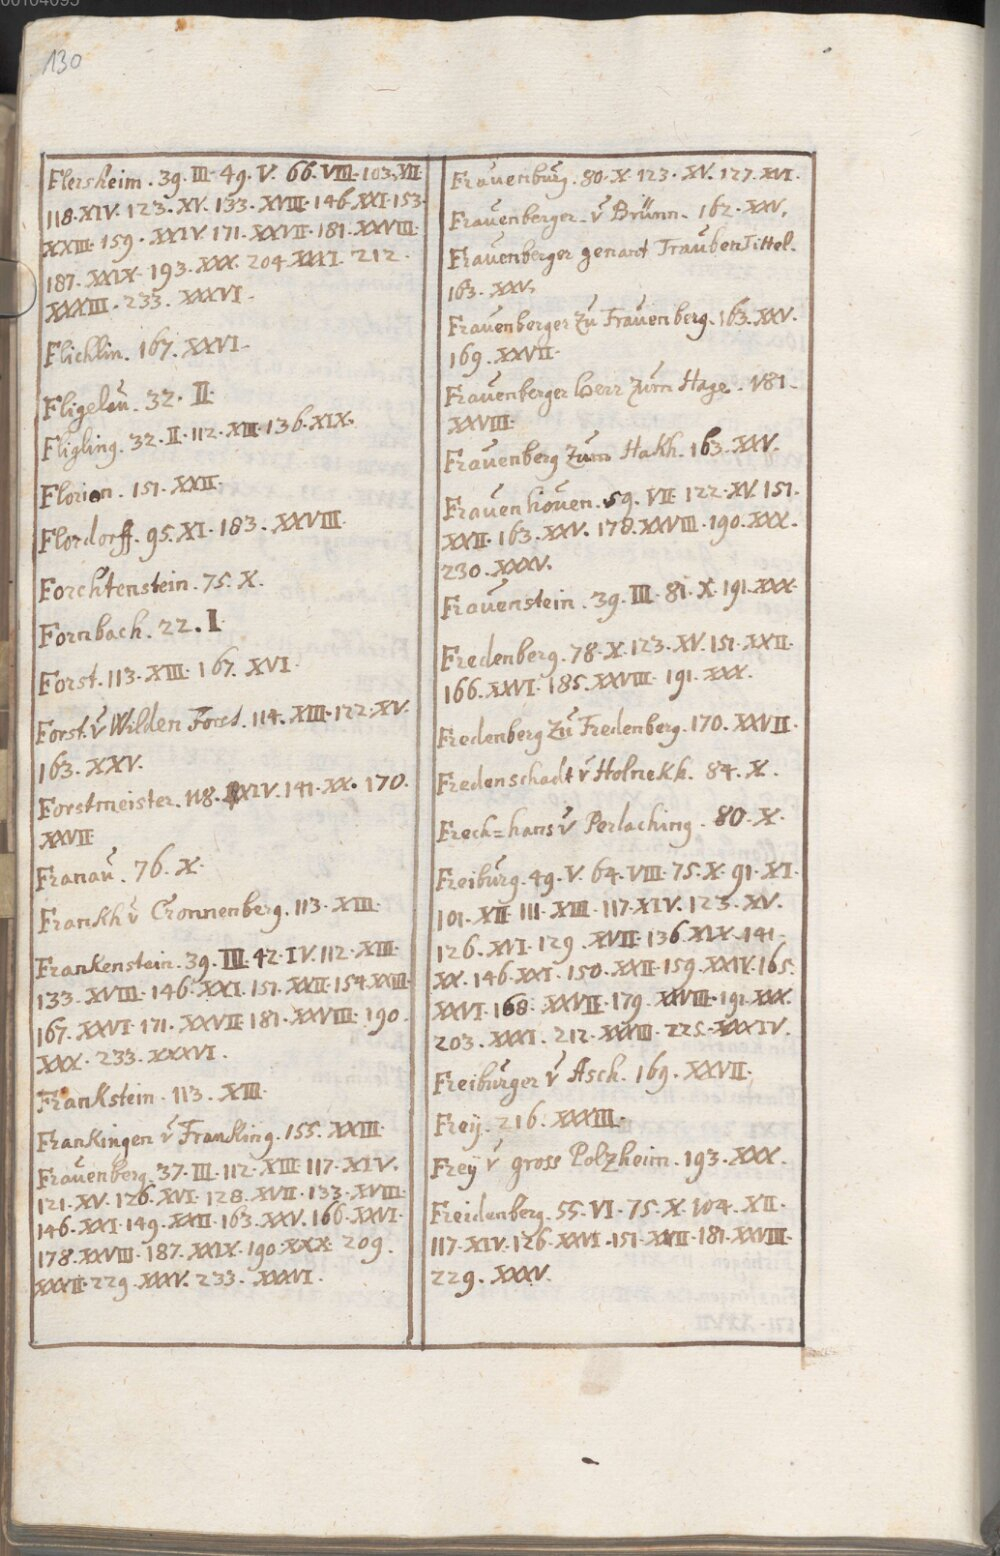 130
Flersheim. 39. III. 49. V. 66. VIII. 103. XII.
118. XIV. 123. XV. 133. XVIII. 146. XXI. 153.
XXIII. 159. XXIV. 171. XXVII. 181. XXVIII.
187. XXIX. 193. XXX. 204. XXXI. 212.
XXXIII. 233. XXXVI.
Flichlin. 167. XXVI.
Fligelaŭ. 32. II.
Fligling. 32. II. 112. XIII. 136. XIX.
Florian. 151. XXII.
Flordorff. 95. XI. 183. XXVIII.
Forchtenstein. 75. X.
Fornbach. 22. I.
Forst. 113. XIII. 167. XVI.
Forst. v̆ Wilden Forst. 114. XIII. 122. XV.
163. XXV.
Forstmeister. 118. XIV. 141. XX. 170.
XXVII.
Franaŭ. 76. X.
Frankh v̆ Cronnenberg. 113. XIII.
Frankenstein. 39. III. 42. IV. 112. XIII.
133. XVIII. 146. XXI. 151. XXII. 154. XXIII.
167. XXVI. 171. XXVII. 181. XXVIII. 190.
XXX. 233. XXXVI.
Frankstein. 113. XIII.
Frankingen v̆ Franking. 155. XXIII.
Fraŭenberg. 37. III. 112. XIII. 117. XIV.
121. XV. 126. XVI. 128. XVII. 133. XVIII.
146. XXI. 149. XXII. 163. XXV. 166. XXVI.
178. XXVIII. 187. XXIX. 190. XXX. 209.
XXXII. 229. XXXV. 233. XXXVI.
Fraŭenbŭrg. 80. X. 123. XV. 127. XVI.
Fraŭenberger. v̆ Brünn. 162. XXV.
Fraŭenberger genant TraŭbenTittel.
163. XXV.
Fraŭenberger Zŭ Fraŭenberg. 163. XXV.
169. XXVII.
Fraŭenberger Herr Zŭm Hage. 181.
XXVIII.
Fraŭenberg Zŭm Hakh. 163. XXV.
Fraŭenhoŭen. 59. VII. 122. XV. 151.
XXII. 163. XXV. 178. XXVIII. 190. XXX.
230. XXXV.
Fraŭenstein. 39. III. 81. X. 191. XXX.
Fredenberg. 78. X. 123. XV. 151. XXII.
166. XXVI. 185. XXVIII. 191. XXX.
Fredenberg Zŭ Fredenberg. 170. XXVII.
Fredenschadt v̆ Holnekk. 84. X.
Frech=hans v̆ Perlaching. 80. X.
Freibŭrg. 49. V. 64. VIII. 75. X. 91. XI.
101. XII. 111. XIII. 117. XIV. 123. XV.
126. XVI. 129. XVII. 136. XIX. 141.
XX. 146. XXI. 150. XXII. 159. XXIV. 165.
XXVI. 168. XXVII. 179. XXVIII. 191. XXX.
203. XXXI. 212. XXXIII. 225. XXXIV.
Freibŭrger v̆ Asch. 169. XXVII.
Freÿ. 216. XXXIII.
Freÿ v̆ gross Polzheim. 193. XXX.
Freidenberg. 55. VI. 75. X. 104. XII.
117. XIV. 126. XXVI. 151. XXII. 181. XXVIII.
229. XXXV.